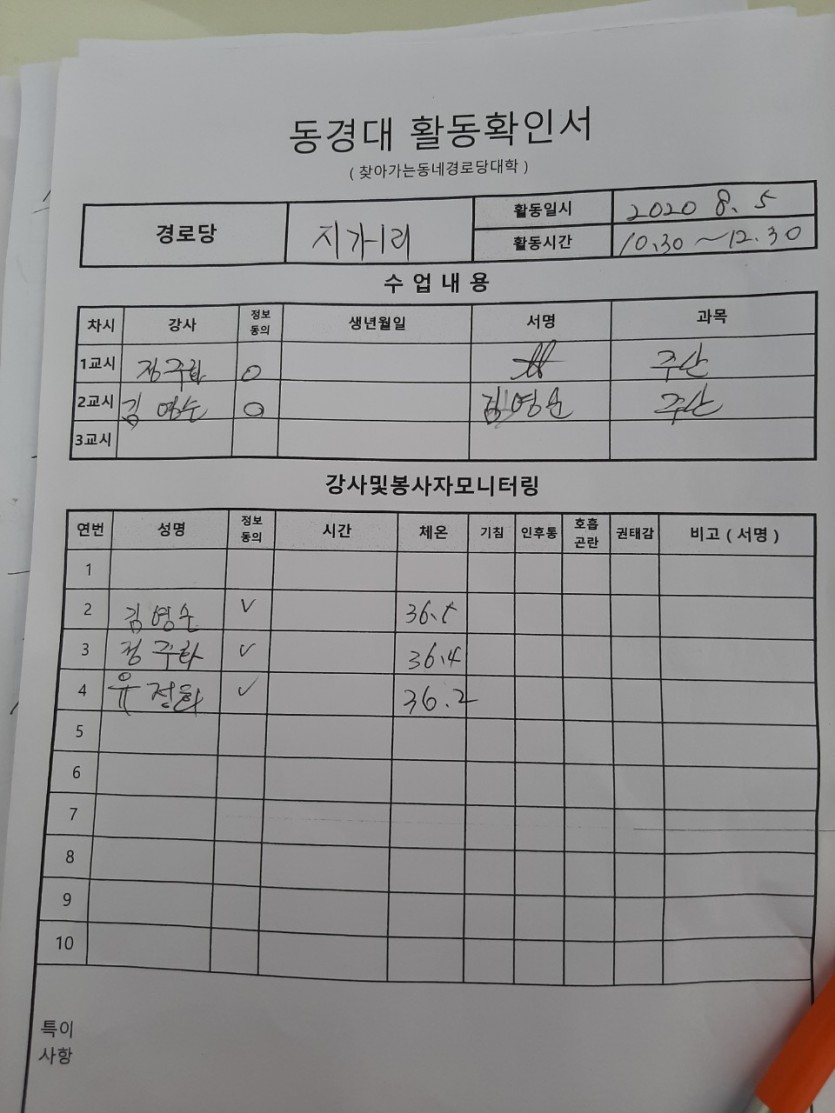 동경대 활동확인서
( 찾아가는동네경로당대학 )
경로당 지가리 활동일시 2020 8. 5
활동시간 10.30 ~ 12.30
수 업 내 용
차시 강사 정보동의 생년월일 서명 과목
1교시 O 주산
2교시 김영순 O 김영순 주산
3교시
강사및봉사자모니터링
연번 성명 정보동의 시간 체온 기침 인후통 호흡곤란 권태감 비고 ( 서명 )
1
2 김영순 V 36.5
3 V 36.4
4 V 36.2
5
6
7
8
9
10
특이
사항